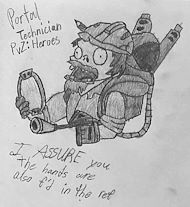 Portal
Technician
PvZ: Heroes
I ASSURE you
the hands are
also f'd in the ref